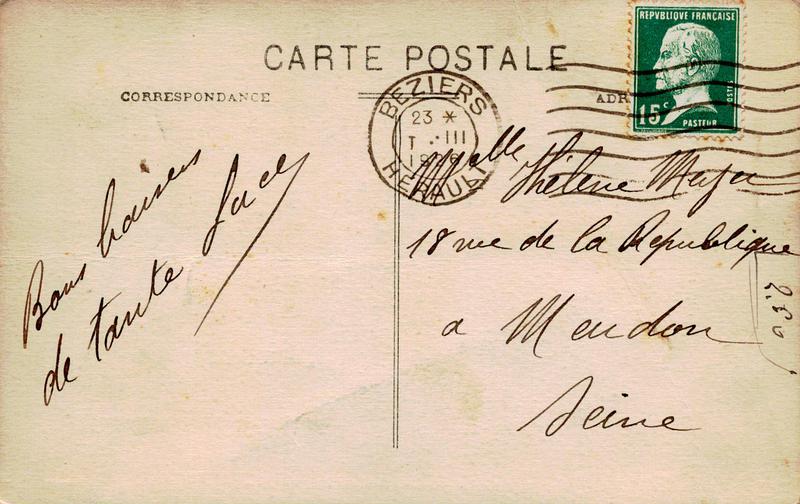 CARTE POSTALE
CORRESPONDANCE
ADR
REPUBLIQUE FRANÇAISE
POSTES
15c
PASTEUR
BEZIERS
23 *
III
HERAULT
Bons baisers
de tante
Melle Hélène
18 rue de la Republique
a Meudon
Seine